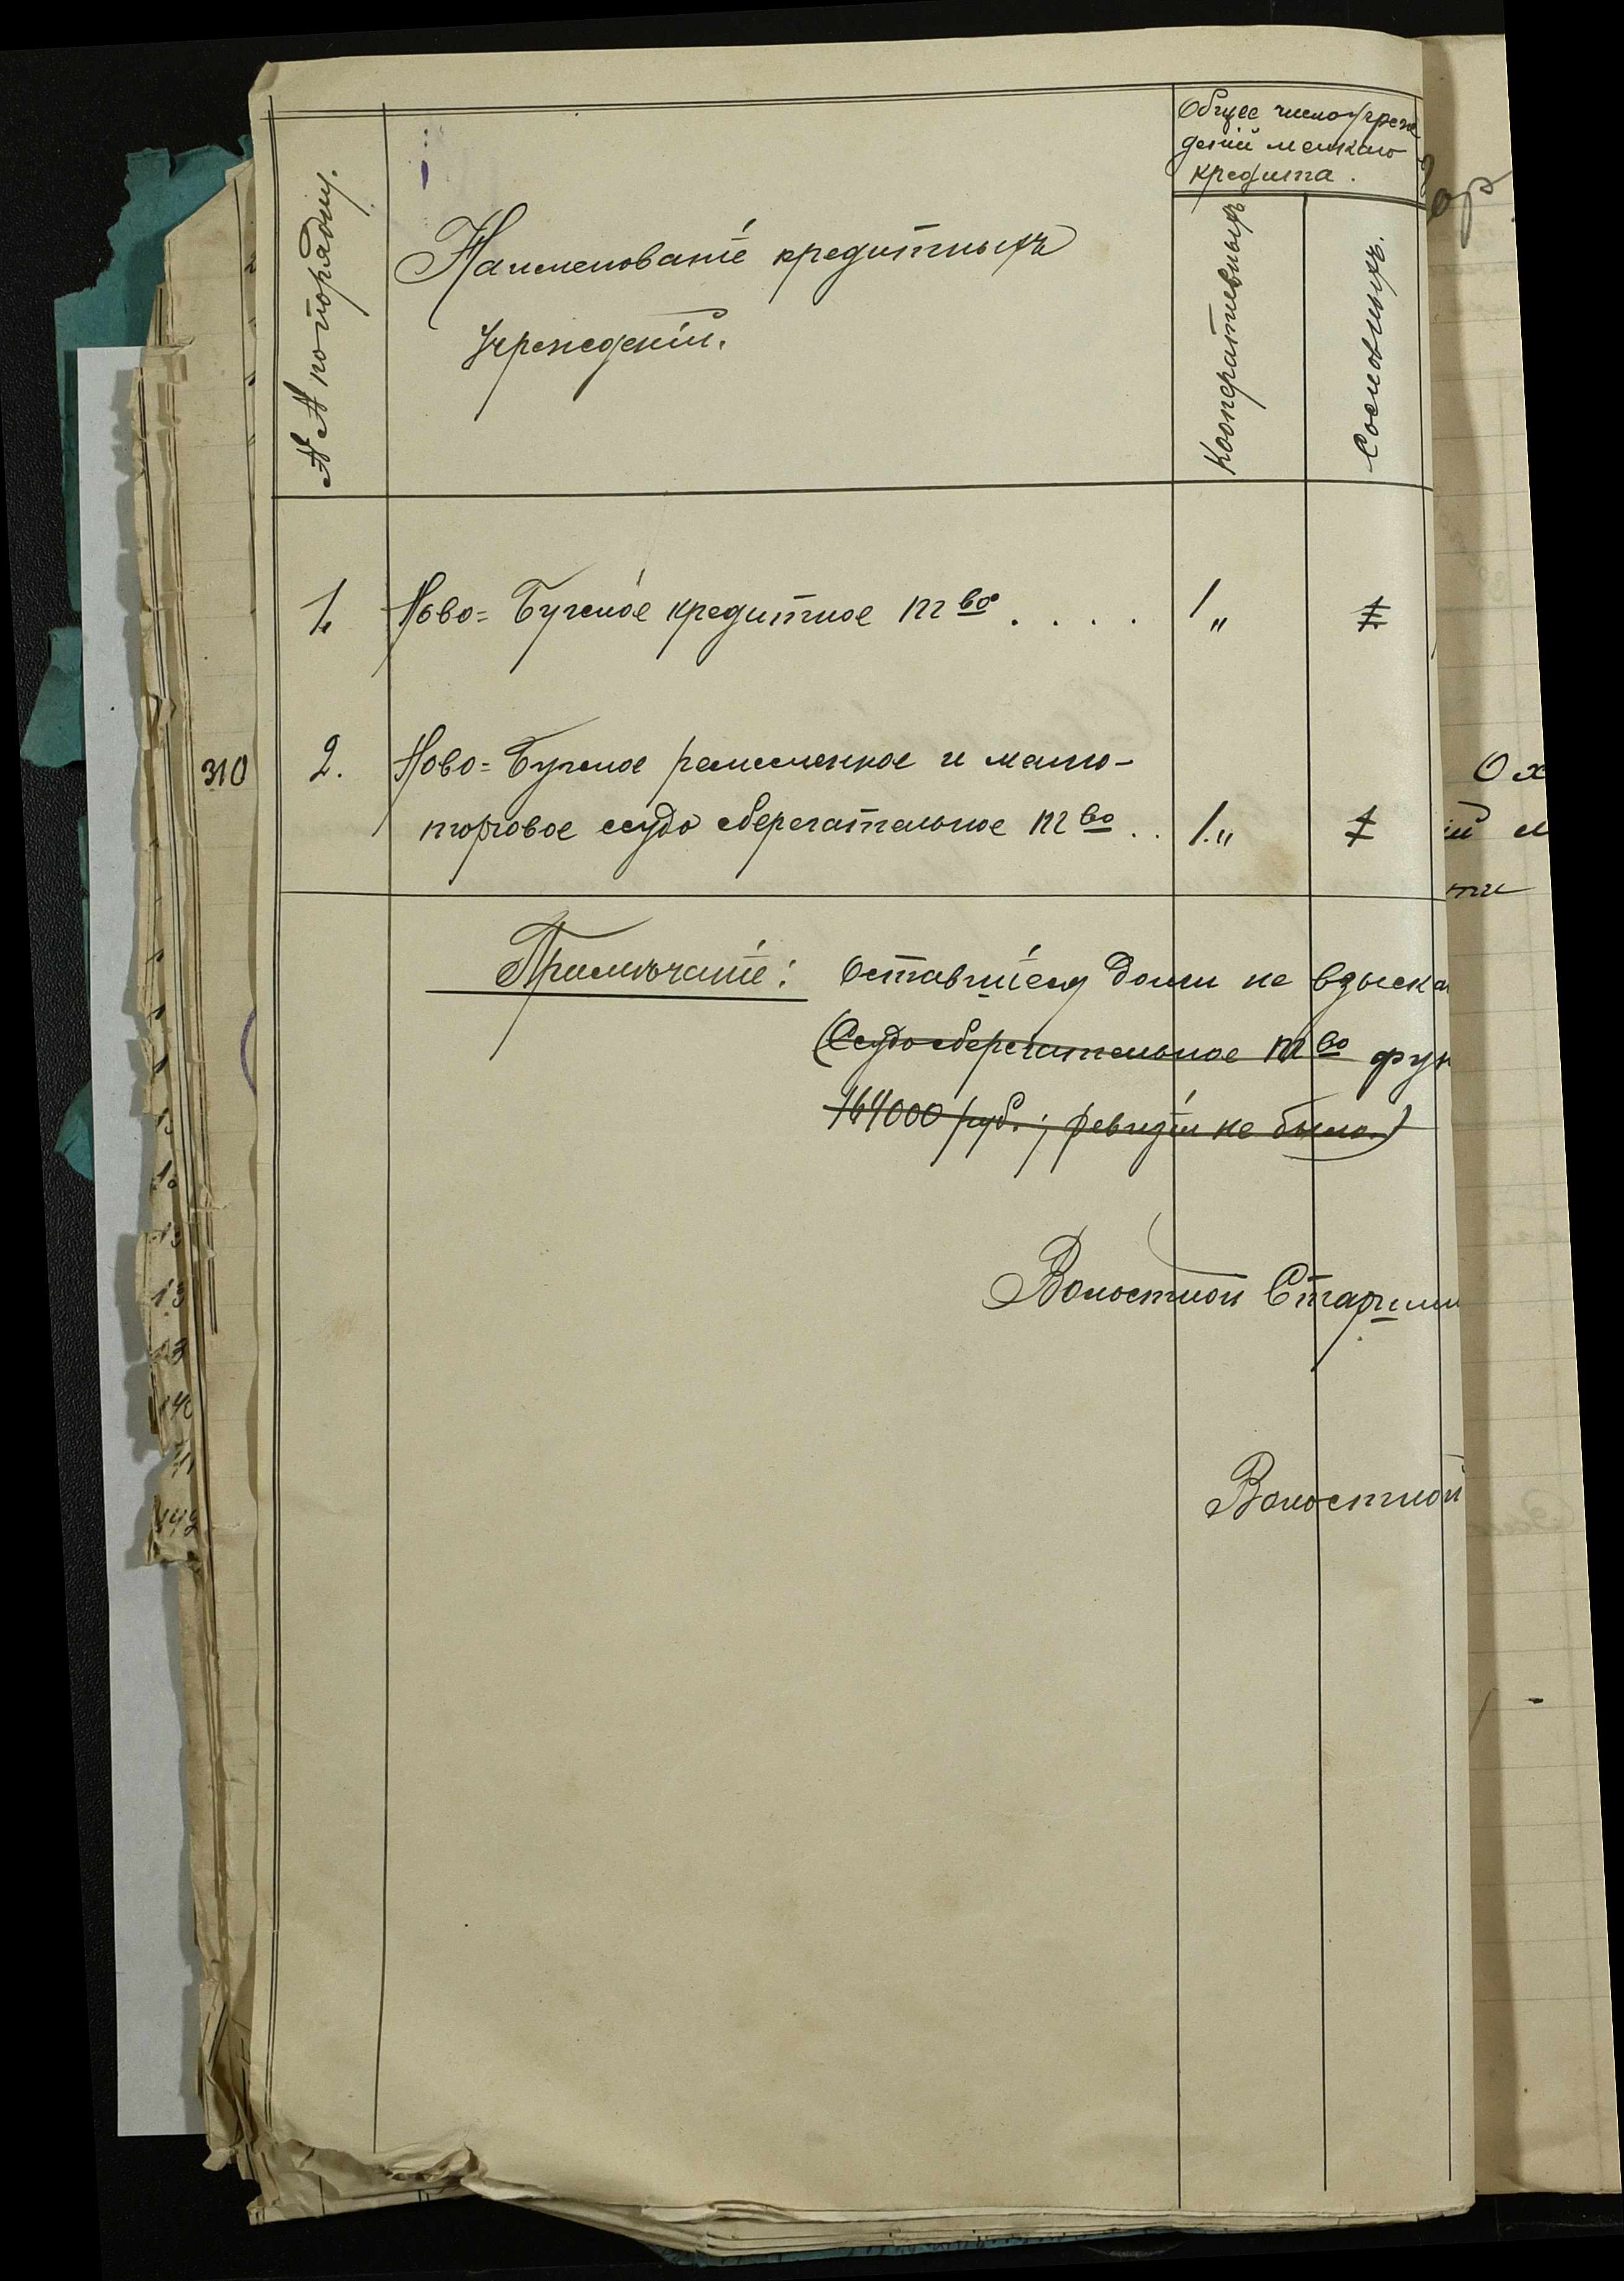 №№ по порядку.
Наименованіе кредитныхъ
учрежденій.
Общее число учреж
деній мелкаго
кредита.
Кооперативныхъ
Сословныхъ.
1. Ново=Бугское кредитное т во . . . . 1 „
310
2. Ново=Бугское ремесленное и мало-
торговое ссудо сберегательное т во . . 1. „
Примѣчаніе: Оставшіеся долги не взыска
(Ссудо сберегательное т во фун
164000 руб.; ревизій не было.)
Волостной Старшин
Волостной